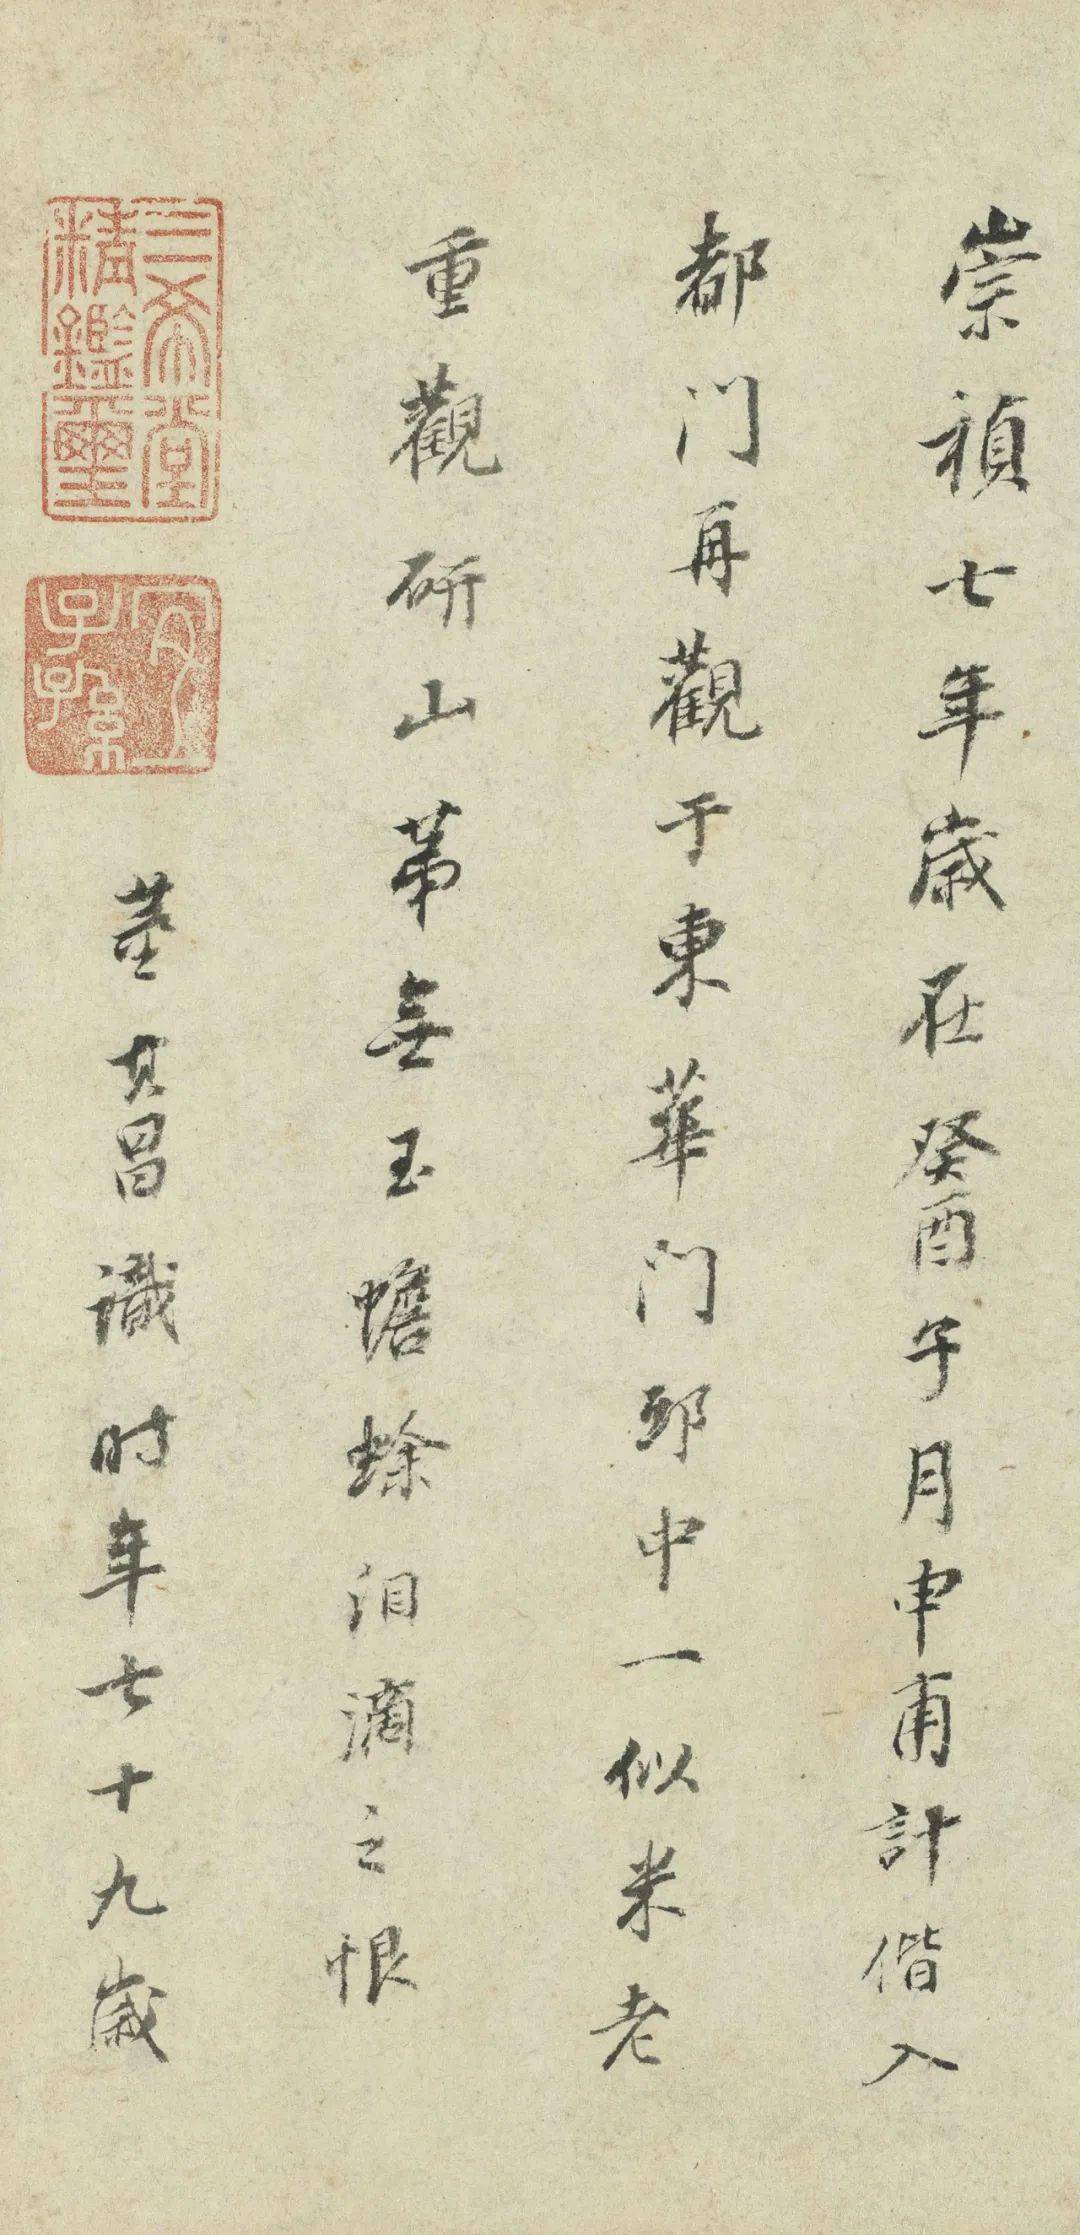 崇禎七年歲在癸酉子月申甫計偕入
都门再觀于東華门邸中一似米老
重觀研山第無玉蟾蜍泪滴之恨
董其昌識时年七十九歲
三希堂
精鑑璽
宜
子孫